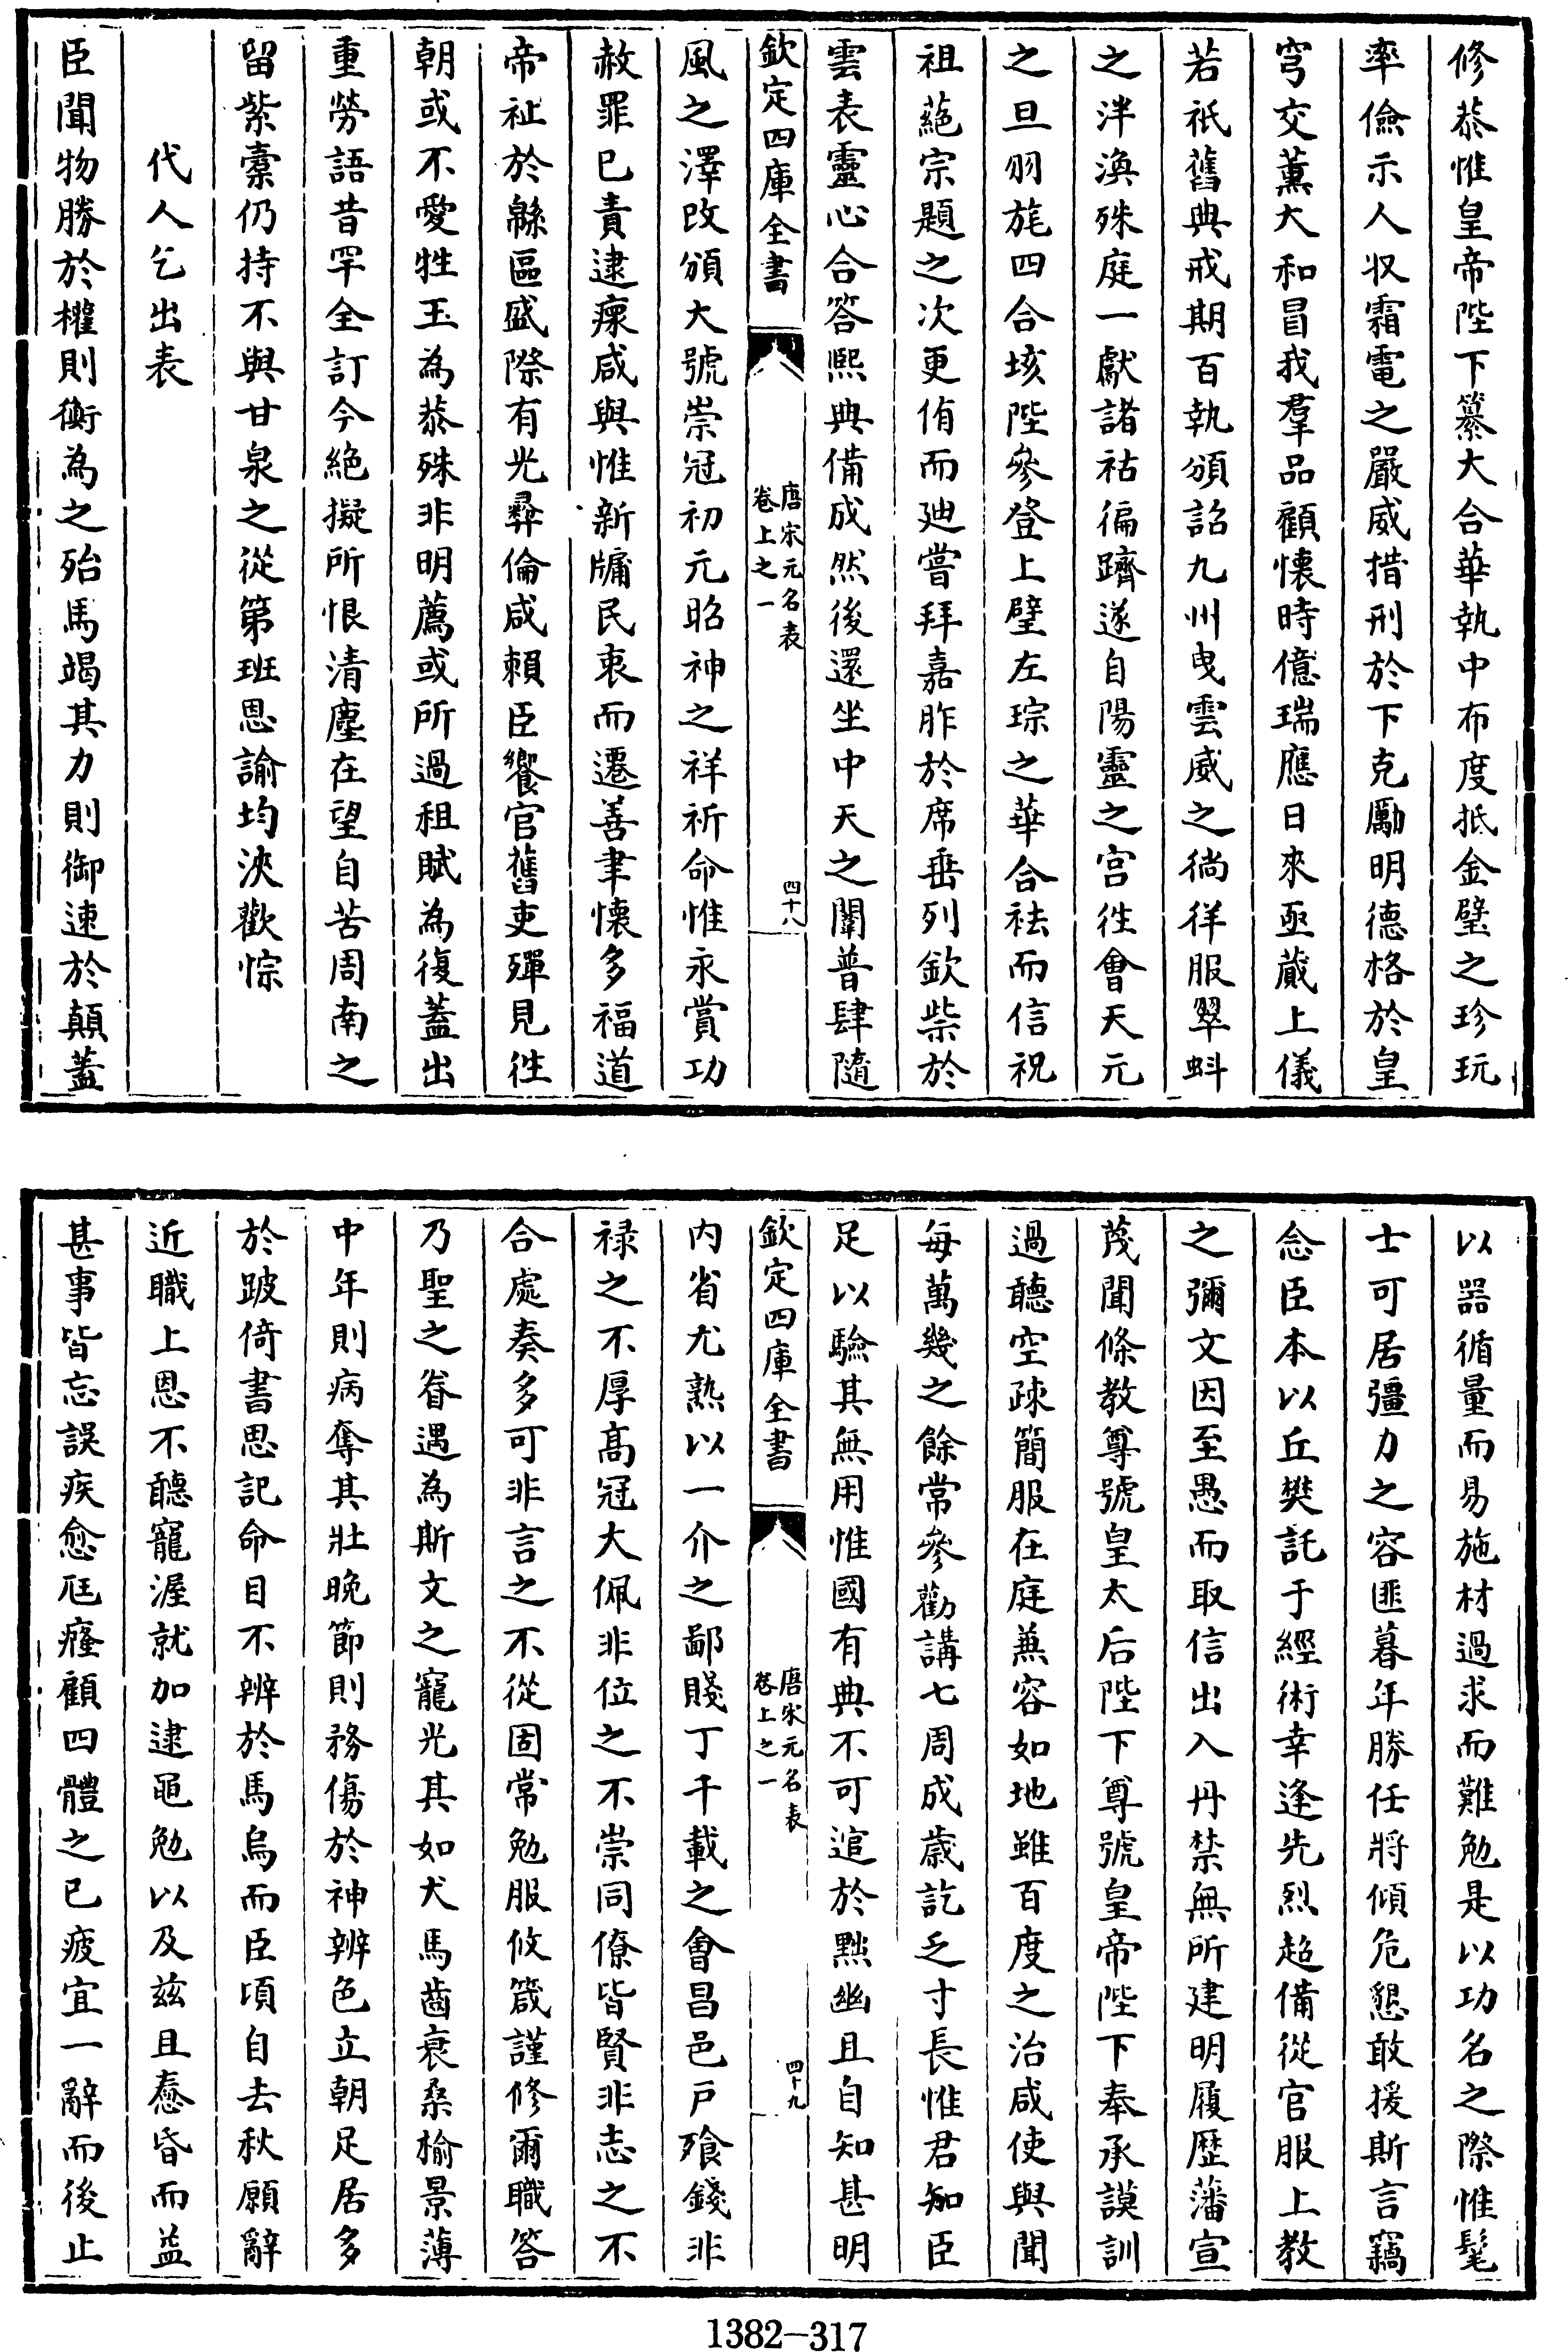 修恭惟皇帝陛下纂大合華執中布度抵金璧之珍玩
率儉示人収霜電之嚴威措刑於下克勵明德格於皇
穹交薰大和冒我羣品顧懷時億瑞應日來亟蕆上儀
若祇舊典戒期百執頒詔九州曵雲威之徜徉服翠蚪
之泮渙殊庭一獻諸祜徧躋遂自陽靈之宫徃會天元
之旦羽旄四合垓陛參登上璧左琮之華合祛而信祝
祖蕝宗題之次更侑而廸嘗拜嘉胙於席垂列欽柴於
雲表靈心合答熙典備成然後還坐中天之闈普肆隨
欽定四庫全書
唐宋元名表
卷上之一
四十八
風之澤改頒大號崇冠初元昭神之祥祈命惟永賞功
赦罪已責逮瘝咸與惟新牗民衷而遷善聿懷多福道
帝祉於緜區盛際有光彛倫咸賴臣饗官舊吏殫見徃
朝或不愛牲玉為恭殊非明薦或所過租賦為復蓋出
重勞語昔罕全訂今絶擬所恨清塵在望自苦周南之
留紫橐仍持不與甘泉之從第班恩諭均浹歡悰
代人乞出表
臣聞物勝於權則衡為之殆馬竭其力則御速於顛蓋
以器循量而易施材過求而難勉是以功名之際惟髦
士可居彊力之容匪暮年勝任將傾危懇敢援斯言竊
念臣本以丘樊託于經術幸逢先烈超備從官服上教
之彌文因至愚而取信出入丹禁無所建明履歴藩宣
茂聞條教尊號皇太后陛下尊號皇帝陛下奉承謨訓
過聽空疎簡服在庭蒹容如地雖百度之治咸使與聞
每萬幾之餘常參勸講七周成歳訖乏寸長惟君知臣
足以驗其無用惟國有典不可逭於黜幽且自知甚明
欽定四庫全書
唐宋元名表
卷上之一
四十九
内省尤熟以一介之鄙賤丁千載之會昌邑戸飱錢非
禄之不厚髙冠大佩非位之不崇同僚皆賢非志之不
合處奏多可非言之不從固常勉服攸箴謹修爾職答
乃聖之眷遇為斯文之寵光其如犬馬齒衰桑榆景薄
中年則病奪其壯晩節則務傷於神辨色立朝足居多
於跛倚書思記命目不辨於馬烏而臣頃自去秋願辭
近職上恩不聽寵渥就加逮黽勉以及兹且惷昏而益
甚事皆忘誤疾愈尫癃顧四體之已疲宜一辭而後止
1382-317